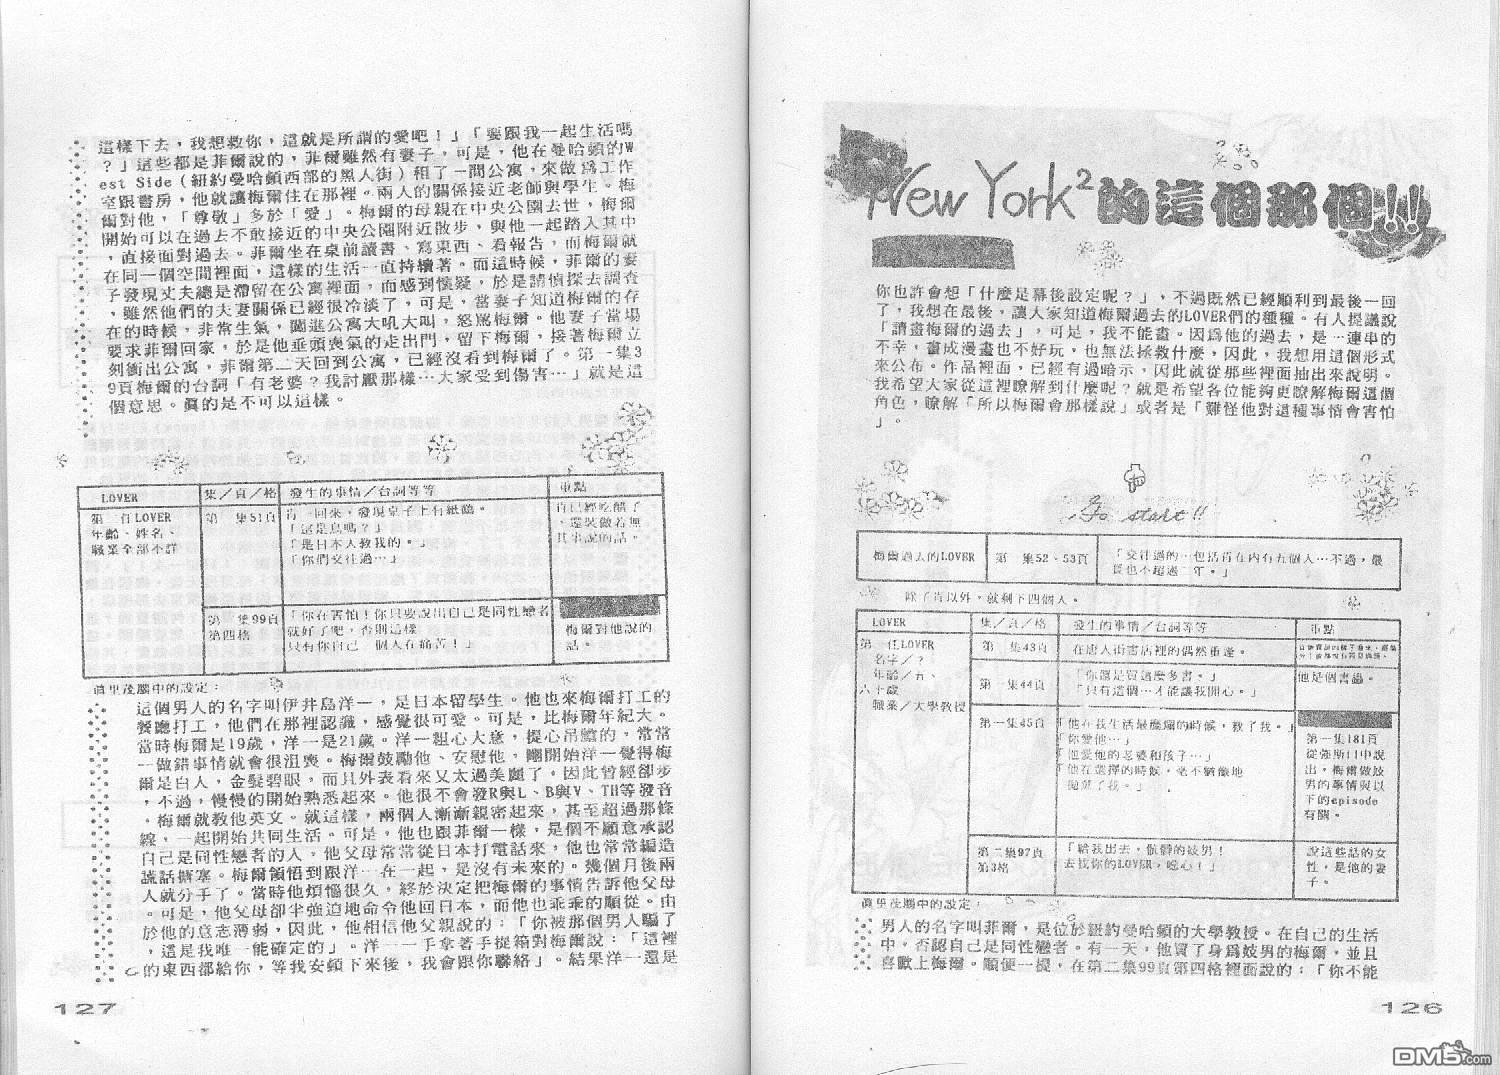 New York²的這個那個!!
你也許會想「什麼是幕後設定呢？」，不過既然已經順利到最後一回
了，我想在最後，讓人家知道梅爾過去的LOVER們的種種。有人提議說
「請畫梅爾的過去」，可是，我不能畫。因為他的過去，是一連串的
不幸，畫成漫畫也不好玩，也無法拯救什麼，因此，我想用這個形式
來公布。作品裡面，已經有過暗示，因此就從那些裡面抽出來說明。
我希望大家從這裡瞭解到什麼呢？就是希望各位能夠更瞭解梅爾這個
角色，瞭解「所以梅爾會那樣說」或者是「難怪他對這種事情會害怕
」。
Go start!!
梅爾過去的LOVER
第一集52、53頁
「交往過的…包括肯在內有五個人…不過，最
長也不超過二年。」
除了肯以外，就剩下四個人。
LOVER
集／頁／格
發生的事情／台詞等等
重點
第一任LOVER
名字／？
年齡／五、
六十歲
職業／大學教授
第一集43頁
在唐人街書店裡的偶然重逢。
第一集44頁
「你還是買這麼多書。」
「只有這個…才能讓我開心。」
他是個書蟲。
第一集45頁
「他在我生活最糜爛的時候，救了我。」
「你愛他…」
「他愛他的老婆和孩子…」
「他在選擇的時候，毫不猶豫地
拋棄了我。」
第一集181頁
從強斯口中說
出，梅爾做妓
男的事情與以
下的episode
有關。
第二集97頁
第3格
「給我出去，骯髒的妓男！
去找你的LOVER，噁心！」
說這些話的女
性，是他的妻
子。
真里茂腦中的設定：
男人的名字叫菲爾，是位於紐約曼哈頓的大學教授。在自己的生活
中，否認自己是同性戀者。有一天，他買了身為妓男的梅爾，並且
喜歡上梅爾。順便一提，在第二集99頁第四格裡面說的：「你不能
126
這樣下去，我想救你，這就是所謂的愛吧！」「要跟我一起生活嗎
？」這些都是菲爾說的，菲爾雖然有妻子，可是，他在曼哈頓的W
est Side（紐約曼哈頓西部的黑人街）租了一間公寓，來做為工作
室跟書房，他就讓梅爾住在那裡。兩人的關係接近老師與學生。梅
爾對他，「尊敬」多於「愛」。梅爾的母親在中央公園去世，梅爾
開始可以在過去不敢接近的中央公園附近散步，與他一起踏入其中
，直接面對過去。菲爾坐在桌前讀書、寫東西、看報告，而梅爾就
在同一個空間裡面，這樣的生活一直持續著。而這時候，菲爾的妻
子發現丈夫總是滯留在公寓裡面，而感到懷疑，於是請偵探去調查
，雖然他們的夫妻關係已經很冷淡了，可是，當妻子知道梅爾的存
在的時候，非常生氣，闖進公寓大吼大叫，怒罵梅爾。他妻子當場
要求菲爾回家，於是他垂頭喪氣的走出門，留下梅爾，接著梅爾立
刻衝出公寓，菲爾第二天回到公寓，已經沒看到梅爾了。第一集3
9頁梅爾的台詞「有老婆？我討厭那樣…大家受到傷害…」就是這
個意思。真的是不可以這樣。
LOVER
集／頁／格
發生的事情／台詞等等
重點
第二任LOVER
年齡、姓名、
職業全部不詳
第一集51頁
肯一回來，發現桌子上有紙鶴。
「這是鳥嗎？」
「是日本人教我的。」
「你們交往過…」
肯已經吃醋了
，還裝做若無
其事說的話。
第二集99頁
第四格
「你在害怕！你只要說出自己是同性戀者
就好了吧，否則這樣
只有你自己一個人在痛苦！」
梅爾對他說的
話。
真里茂腦中的設定：
這個男人的名字叫伊井島洋一，是日本留學生。他也來梅爾打工的
餐廳打工，他們在那裡認識，感覺很可愛。可是，比梅爾年紀大。
當時梅爾是19歲，洋一是21歲。洋一粗心大意，提心吊膽的，常常
一做錯事情就會很沮喪。梅爾鼓勵他、安慰他，剛開始洋一覺得梅
爾是白人，金髮碧眼，而且外表看來又太過美麗了，因此曾經卻步
，不過，慢慢的開始熟悉起來。他很不會發R與L、B與V、TH等發音
，梅爾就教他英文。就這樣，兩個人漸漸親密起來，甚至超過那條
線，一起開始共同生活。可是，他也跟菲爾一樣，是個不願意承認
自己是同性戀者的人，他父母常常從日本打電話來，他也常常編造
謊話搪塞。梅爾領悟到跟洋一在一起，是沒有未來的。幾個月後兩
人就分手了。當時他煩惱很久，終於決定把梅爾的事情告訴他父母
。可是，他父母卻半強迫地命令他回日本，而他也乖乖的順從。由
於他的意志薄弱，因此，他相信他父親說的：「你被那個男人騙了
，這是我唯一能確定的」。洋一一手拿著手提箱對梅爾說：「這裡
的東西都給你，等我安頓下來後，我會跟你聯絡」。結果洋一還是
127
DM5.com